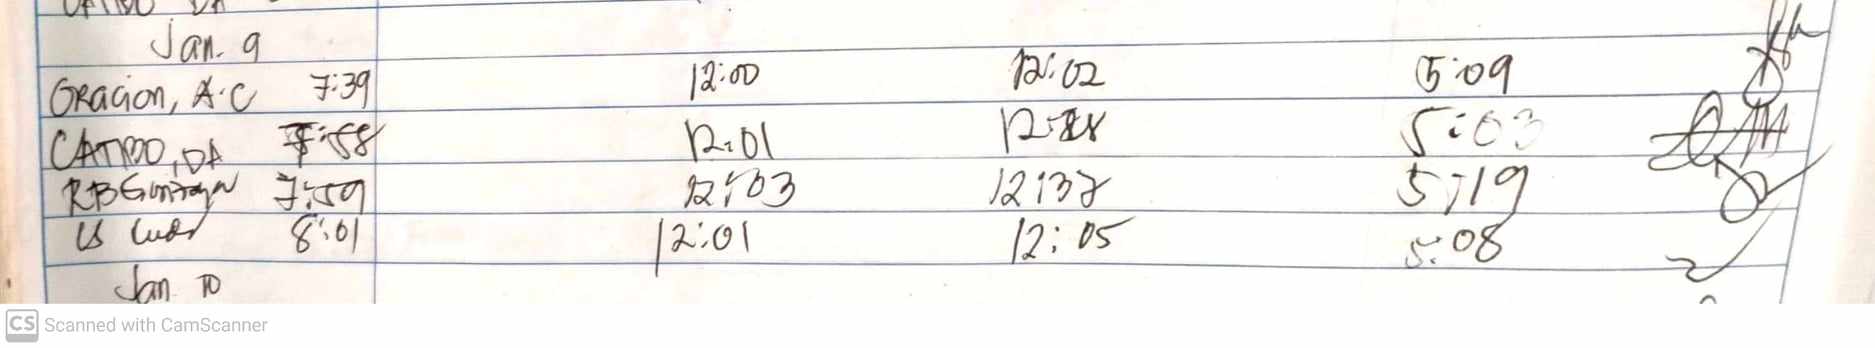 CATIBO DA
Jan. 9
GRACION, A.C 7:39 12:00 12:02 5:09
CATIBO, DA 7:58 12:01 12:28 5:03
RB 7:59 12:03 12:32 5:19
LS 8:01 12:01 12:05 5:08
Jan 10
CS Scanned with CamScanner